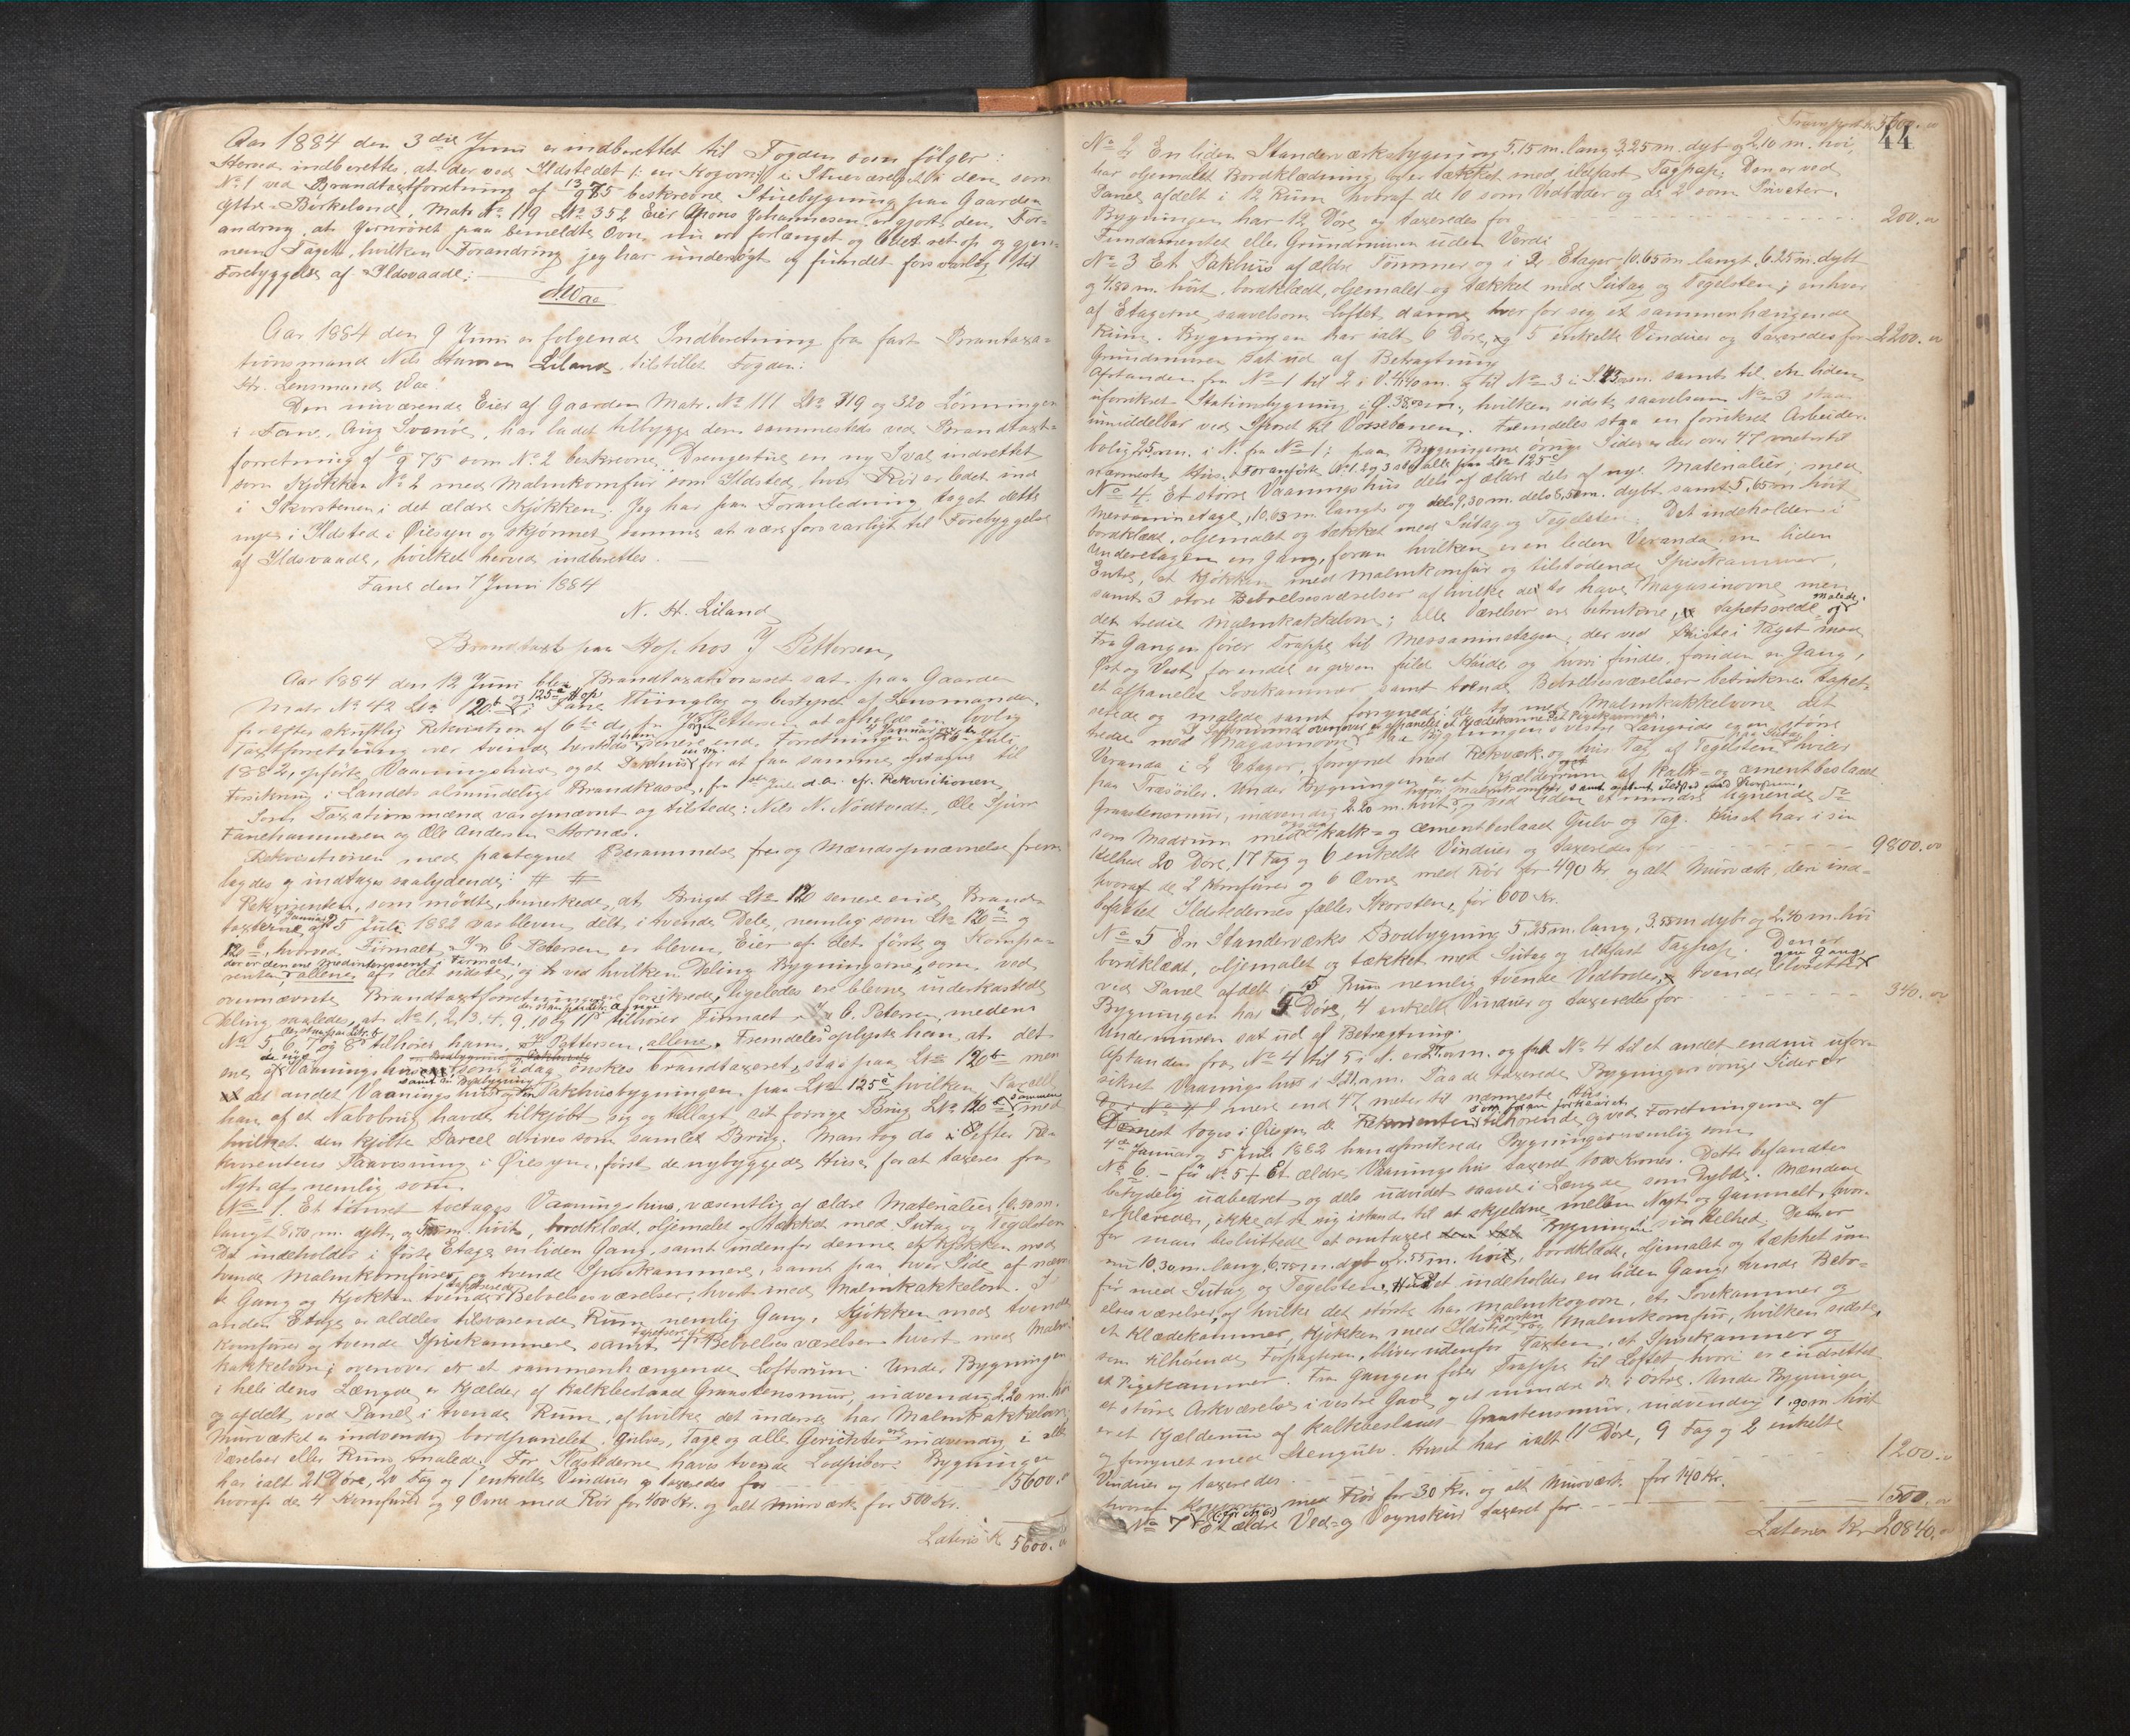 Aar 1884 den 3die Juni er indberettet til Fogden som følger:
indberettes at der ved Ildstedet i en Kogeovn i Stueværelset i den som
No 1 ved Brandtaxtforretning af 13/9 75 beskrevne Stuebygning paa Gaarden
Ytre-Birkeland, Matr No 119 LNo 352 Eier Mons Johannesen er gjort den For-
andring at Jernrøret paa bemeldte Ovn nu er forlænget og ledet ret op og gjen-
nem Taget, hvilken Forandring jeg har undersøgt og fundet forsvarlig til
Forebyggelse af Ildsvaade.
Aar 1884 den 9 Juni er følgende Indberetning fra fast Brandtaxa-
tionsmand Nils Hansen Liland tilstillet Fogden:
Hr. Lensmand Wae!
Den nuværende Eier af Gaarden Matr. No 111 LNo 319 og 320 Lønningen
i Fane, Aug Svanøe, har ladet tilbygge den sammesteds ved Brandtaxt-
forretning af 6/9 75 som No 2 beskrevne Drengestue en ny Sval indrettet
som Kjøkken No 2 med Malmkomfur som Ildsted, hvis Rør er ledet ind
i Skorstenen i det ældre Kjøkken. Jeg har paa Foranledning taget dette
nye Ildsted i Øiesyn og skjønnet samme at være forsvarligt til Forebyggelse
af Ildsvaade, hvilket herved indberettes.
Fane den 7 Juni 1884
N. H. Liland
Brandtaxt paa Hop hos J Pettersen
Aar 1884 den 12 Juni blev Brandtaxationsret sat paa Gaarden
Matr No 42 LNo 120b og 125c Hop i Fane Thinglag og bestyret af Lensmanden
for efter skriftlig Rekvisition af 6te ds. fra Pettersen at afholde en lovlig
Taxtforretning over tvende senere end Forretningen af 4 Januar og 5 Juli
1882, opførte Vaaningshuse og et Pakhus for at faa samme optagne til
Forsikring i Landets almindelige Brandkasse, fra Juli d.a. cfr. Rekvisitionen
Som Taxationsmænd var opnævnt og tilstede: Nils N. Nødtvedt, Ole Sjursen
Fanehammeren og Ole Andersen Stornæs.
Rekvisitionen med paategnet Berammelse og Mændsopnævnelse frem-
lagdes og indtages saalydende: # #
Rekvirenten, som mødte, bemerkede, at Bruget LNo 120 senere end Brand-
taxterne af Januar og 5 Juli 1882 var bleven delt i tvende Dele, nemlig som LNo 120a og
120b, hvorved Firmaet J & C Petersen er bleven Eier af det første og Kompa-
der er den ene Medinteressent i Firmaet,
renten allene af det sidste, og ved hvilken Deling Bygningerne, som ved
ovennævnte Brandtaxtforretninger ere forsikrede, ligeledes ere blevne underkastede
Deling saaledes, at No 1, 2, 3, 4, 9, 10 og 11 tilhører Firmaet J & C. Petersen, medens
No 5, 6, 7 og 8 tilhører ham, Pettersen, allene. Fremdeles oplyste han, at det
ene af Vaaningshusene som idag ønskes brandtaxeret, staa paa LNo 120b men
det andet Vaaningshus og Pakhusbygningen paa LNo 125c hvilken Parcel
han af et Nabobrug havde tilkjøbt sig og tillagt sit forrige Brug LNo 120b med
hvilket den kjøbte Parcel drives som samlet Brug. Man tog da efter Re-
kvirentens Paavisning i Øiesyn, først de nybyggede Huse for at taxeres fra
Nyt af nemlig som.
No 1. Et tømret toetages Vaaningshus, væsentlig af ældre Materialier, 10.50 m.
langt 8.70 m. dybt og m. høit, bordklædt, oljemalet og tækket med Sutag og Teglsten
Det indeholder i første Etage en liden Gang, samt indenfor denne et Kjøkken med
tvende Malmkomfurer og tvende Spisekammere, samt paa hver Side af nævn-
te Gang og Kjøkken tvende tapetserede Beboelsesværelser, hvert med Malmkakkelovn. I
anden Etage er aldeles tilsvarende Rum nemlig Gang, Kjøkken med tvende
Komfurer og tvende Spisekammere samt 4 tapetserede Beboelsesværelser hvert med Malm-
kakkelovn; ovenover er et sammenhængende Loftsrum. Under Bygningen
i hele dens Længde er Kjælder af kalkbeslaaed Graastensmur, indvendig 2.20 m. høi
og afdelt ved Panel i tvende Rum, af hvilke det inderste har Malmkakkelovn
Murværket er indvendig bordpanelet. Gulve, Tage og alle Gerichter ere indvendig i alle
Værelser eller Rum malede. For Ildstederne haves tvende Lodpiber. Bygningen
har ialt 21 Døre, 20 Fag og 1 enkelte Vindue og taxeredes for 5600.
hvoraf de 4 Komfurer og 9 Ovne med Rør for 400 Kr. og alt Murværk for 500 Kr.
Lateris Kr 5600.
Transport Kr. 5600.
44
No 2 En liden Standerværksbygning 5,15 m. lang 3,25 m. dyb og 2,10 m. høi,
har oljemalet Bordklædning, er tækket med ildfast Tagpap. Den er ved
Panel afdelt i 12 Rum hvoraf de 10 som Vedboder og de 2 som Priveter.
Bygningen har 12 Døre og taxeredes for 200.
Fundamentet eller Grundmuren uden Verdi
No 3 Et Pakhus af ældre Tømmer og i 2 Etager 10.65 m langt, 6.25 m. dybt
og 7.80 m. høit, bordklædt, oljemalet og tækket med Sutag og Teglsten; enhver
af Etagerne saavelsom Loftet danner hver for sig et sammenhængende
Rum. Bygningen har ialt 6 Døre, og 5 enkelte Vinduer og taxeredes for 2200.
Grundmuren sat ud af Betragtning
Afstanden fra No 1 til 2 i V. 4,40 m. og til No 3 i S. m. samt til en liden
uforsikret Stationsbygning i Ø. 38,00 m., hvilken sidste saavelsom No 3 staar
umiddelbar ved Sporet til Vossebanen. Fremdeles staa en forsikret Arbeider-
bolig 25 m. i N. fra No 1; fra Bygningerne øvrige Sider er der over 47 meter til
nærmeste Hus. Foranførte No 1, 2 og 3 staa alle paa LNo 125c
No 4. Et større Vaaningshus dels af ældre dels af nye Materialier, med
Messaninetage, 10,63 m langt og dels 9,30 m. dels 8,50 m. dybt samt 5,65 m høit
bordklædt, oljemalet og tækket med Sutag og Teglsten. Det indeholder i
Underetagen en Gang, foran hvilken er en liden Veranda, en liden
Entre, et Kjøkken med Malmkomfur og tilstødende Spisekammer,
samt 3 store Beboelsesværelser af hvilke de to have Magasinovne men
det tredie Malmkakkelovn; alle Værelser ere betrukne, tapetserede og malede.
Fra Gangen fører Trappe til Messaninetagen, der ved Kviste i Taget mod
Øst og Vest forendel er given fuld Høide og hvori findes, foruden en Gang,
et afpanelet Sovekammer samt trende Beboelsesværelser betrukne tapet-
serede og malede samt forsynede: de to med Malmkakkelovne det
tredie med Magasinovn. Ved Bygningens vestre Langside er en større
Veranda i 2 Etager, forsynet med Rekværk og hvis Tag af Teglsten hviler
paa Træsøiler. Under Bygningen er et Kjælderrum af kalk- og cementbeslaaet
Graastensmur, indvendig 2.20 m. høit og ved Siden et mindre lignende do
som Madrum med kalk- og cementbeslaaet Gulv og Tag. Huset har i sin
Helhed 20 Døre, 17 Fag og 6 enkelte Vinduer og taxeredes for 9800.
hvoraf de 2 Komfurer og 6 Ovne med Rør for 490 Kr. og alt Murværk, deri ind-
befattet Ildstedernes fælles Skorsten, for 600 Kr.
No 5 En Standerværks Bodbygning 5,25 m. lang, 3,55 m dyb og 2,40 m. høi
bordklædt, oljemalet og tækket med Sutag og ildfast Tagpap. Den er
ved Panel afdelt i 5 Rum nemlig tvende Vedboder, tvende Klosetter og en Gang
Bygningen har 5 Døre, 4 enkelte Vinduer og taxeredes for 340.
Undermuren sat ud af Betragtning.
Afstanden fra No 4 til 5 i N. er m. og fra No 4 til et andet endnu ufor-
sikret Vaaningshus i S. 21 m. Paa de taxerede Bygningers øvrige Sider er
mere end 47 meter til nærmeste Hus.
Dernest toges i Øiesyn de Rekvirenten som foran forklaret tilhørende og ved Forretningerne af
4de Januar og 5 Juli 1882 brandforsikrede Bygninger nemlig som
No 6 – før No 5 – Et ældre Vaaningshus taxeret 1000 Kroner. Dette befandtes
betydelig udbedret og dels udvidet saavel i Længde som Dybde. Mændene
erklærede, ikke at se sig istand til at skjelne mellem Nyt og Gammelt, hvor-
for man besluttede at omtaxere Bygningen i sin Helhed. Den er
nu 10,30 m. lang, 6.75 m. dyb og 2.55 m. høi, bordklædt, oljemalet og tækket som
før med Sutag og Teglsten. Huset indeholder en liden Gang, tvende Bebo-
elsesværelser, af hvilke det største har Malmkogeovn, et Sovekammer og
et Klædekammer, Kjøkken med Ildsted, Skorsten og Malmkomfur, hvilken sidste,
som tilhørende Forpagteren, bliver udenfor Taxten, et Spisekammer og
et Pigekammer. Fra Gangen fører Trappe til Loftet, hvori er indrettet
et større Arkværelse i vestre Gavl og et mindre do i østre. Under Bygningen
er et Kjælderrum af kalkbeslaaet Graastensmur, indvendig 1.90 m høit
og forsynet med Stengulv. Huset har ialt 11 Døre, 9 Fag og 2 enkelte
Vinduer og taxeredes 1200.
hvoraf Kogeovnen med Rør for 30 Kr. og alt Murværk for 140 Kr.
No 7 (før No 6) et ældre Ved- og Vognskur taxeret for 1500.
Lateris Kr 20840.